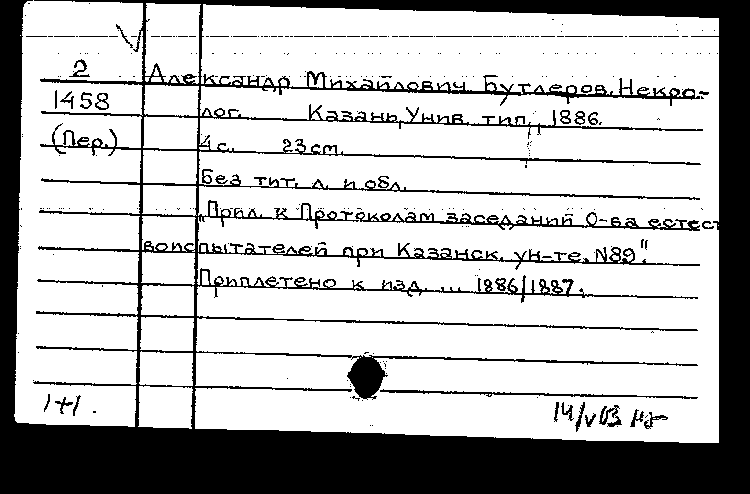 V
2 Александр Михайлович Бутлеров. Некро-
1458 лог. Казань, Унив. тип., 1886.
(Пер.) 4 с. 23 см.
Без тит. л. и обл.
„Прил. к Протоколам заседаний О-ва естест
воиспытателей при Казанск. ун-те, N89".
Приплетено к изд. ... 1886/1887.
1+1.
14/V 03